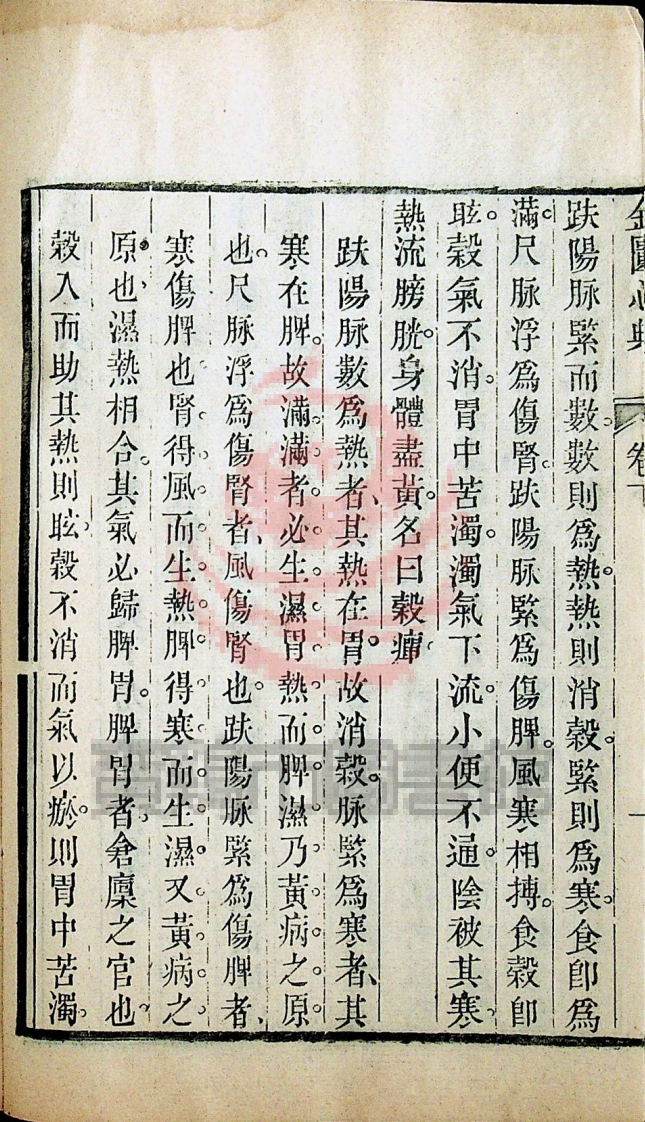 金匱心典 卷下 一
趺陽脉緊而數。數則爲熱。熱則消穀。緊則爲寒。食卽爲
滿。尺脉浮爲傷腎。趺陽脉緊爲傷脾。風寒相搏。食穀卽
眩。穀氣不消。胃中苦濁。濁氣下流。小便不通。陰被其寒。
熱流膀胱。身體盡黃。名曰穀疸
趺陽脉數爲熱者、其熱在胃。故消穀。脉緊爲寒者、其
寒在脾。故滿。滿者必生濕。胃熱而脾濕。乃黃病之原
也。尺脉浮爲傷腎者、風傷腎也。趺陽脉緊爲傷脾者、
寒傷脾也。腎得風而生熱。脾得寒而生濕。又黃病之
原也。濕熱相合。其氣必歸脾胃。脾胃者倉廩之官也
穀入而助其熱則眩。穀不消而氣以瘀。則胃中苦濁。